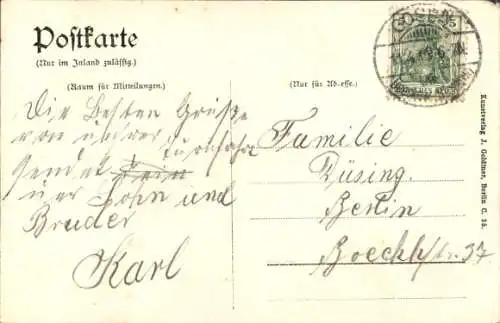 Postkarte
(Nur im Inland zulässig.)
(Raum für Mitteilungen.)
(Nur für Adresse.)
Die besten Grüße
von unsrer Turnfahrt
sendet
Sohn und
Bruder
Karl
Familie
Düsing.
Berlin
Boeckhstr. 37
Kunstverlag J. Goldiner, Berlin C. 25.